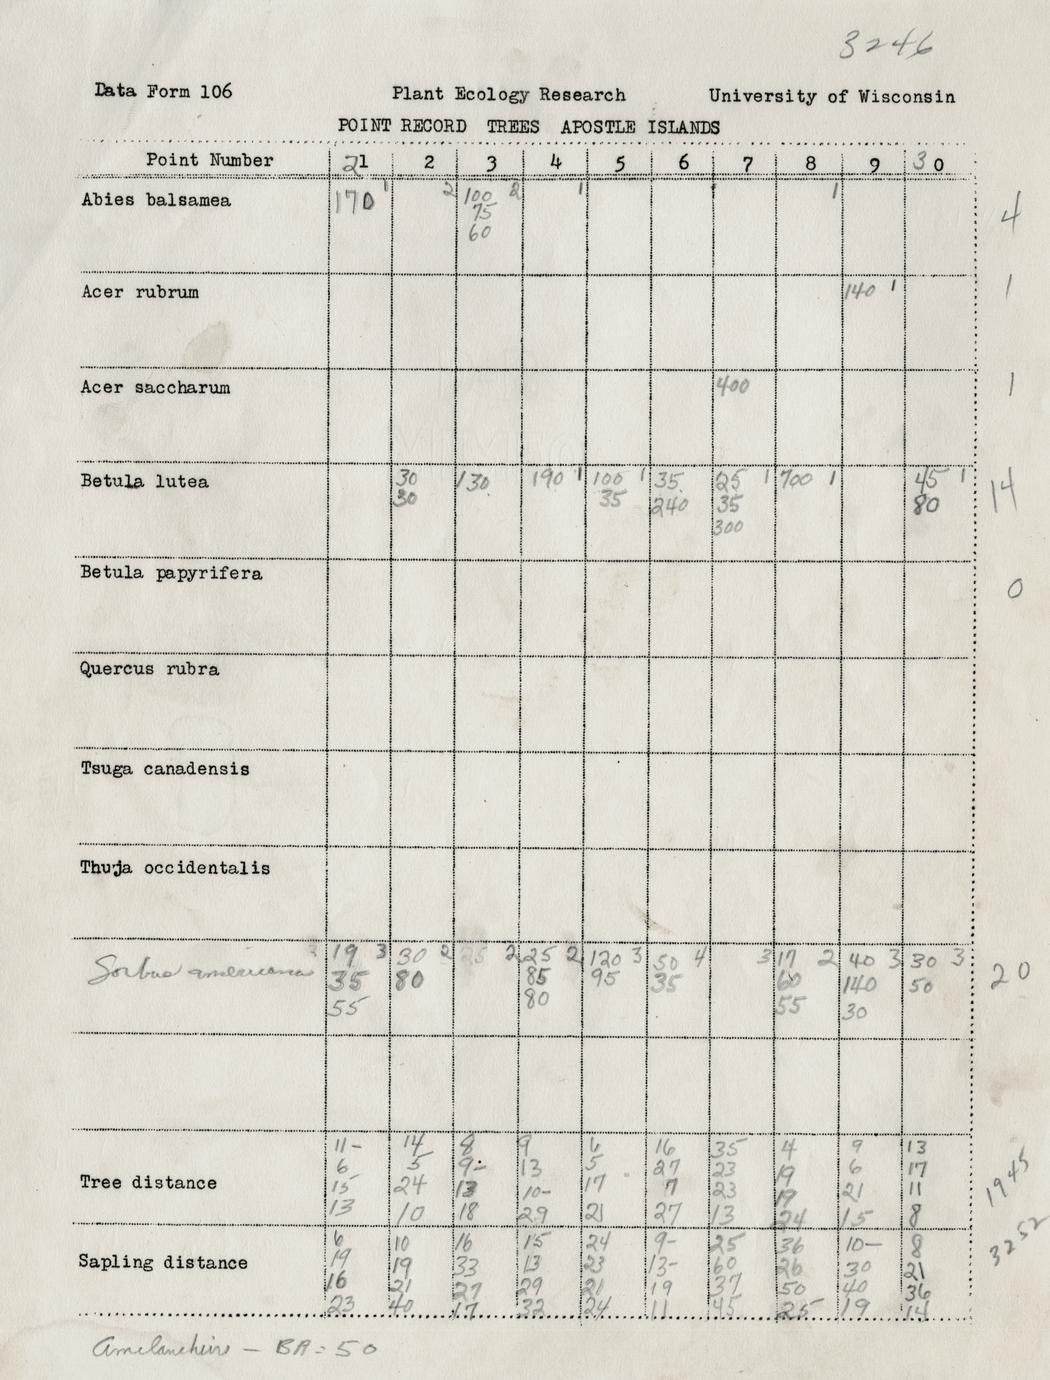 3246
Data Form 106 Plant Ecology Research University of Wisconsin
POINT RECORD TREES APOSTLE ISLANDS
Point Number 21 2 3 4 5 6 7 8 9 30
Abies balsamea 170 1 2 100 2 1 1 4
75
60
Acer rubrum 140 1 1
Acer saccharum 400 1
Betula lutea 30 130 190 1 100 1 35 25 1 700 1 45 1 14
30 35 240 35 80
300
Betula papyrifera 0
Quercus rubra
Tsuga canadensis
Thuja occidentalis
Sorbus americana 3 19 3 30 2 25 2 25 2 120 3 50 4 3 17 2 40 3 30 3 20
35 80 85 95 35 60 140 50
55 80 55 30
Tree distance 11- 14 8 9 6 16 35 4 9 13 1945
6 5 9- 13 5 27 23 19 6 17
15 24 13 10- 17 7 23 19 21 11
13 10 18 29 21 27 13 24 15 8
Sapling distance 6 10 16 15 24 9- 25 36 10- 8 3252
19 19 33 13 23 13- 60 26 30 21
16 21 27 29 21 19 37 50 40 36
23 40 17 32 24 11 45 25 19 14
BA = 50